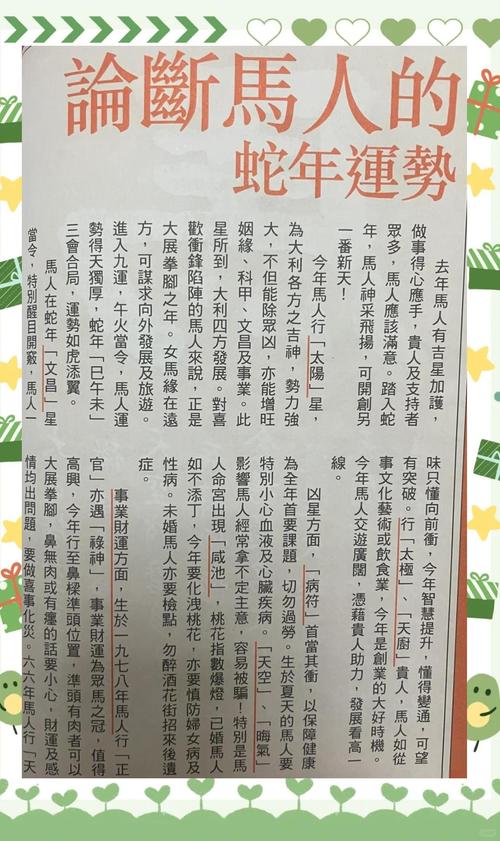 論斷馬人的
蛇年運勢
去年馬人有吉星加護，
做事得心應手，貴人及支持者
眾多，馬人應該滿意。踏入蛇
年，馬人神采飛揚，可開創另
一番新天！
今年馬人行「太陽」星，
為大利各方之吉神，勢力強
大，不但能除眾凶，亦能增旺
姻緣、科甲、文昌及事業。此
星所到，大利四方發展。對喜
歡衝鋒陷陣的馬人來說，正是
大展拳腳之年。女馬緣在遠
方，可謀求向外發展及旅遊。
進入九運，午火當令，馬人運
勢得天獨厚，蛇年「巳午未」
三會合局，運勢如虎添翼。
馬人在蛇年「文昌」星
當令，特別醒目開竅，馬人一
味只懂向前衝，今年智慧提升，懂得變通，可望
有突破。行「太極」、「天廚」貴人，馬人如從
事文化藝術或飲食業，今年是創業的大好時機。
今年馬人交遊廣闊，憑藉貴人助力，發展看高一
線。
凶星方面，「病符」首當其衝，以保障健康
為全年首要課題，切勿過勞。生於夏天的馬人要
特別小心血液及心臟疾病。「天空」、「晦氣」
影響馬人經常拿不定主意，容易被騙！特別是馬
人命宮出現「咸池」，桃花指數爆燈，已婚馬人
如不添丁，今年要化洩桃花，亦要慎防婦女病及
性病。未婚馬人亦要檢點，勿醉酒花街招來後遺
症。
事業財運方面，生於一九七八年馬人行「正
官」亦遇「祿神」，事業財運為眾馬之冠，值得
高興，今年行至鼻樑準頭位置，準頭有肉者可以
大展拳腳，鼻無肉或有癦的話要小心，財運及感
情均出問題，要做喜事化災。六六年馬人行「天